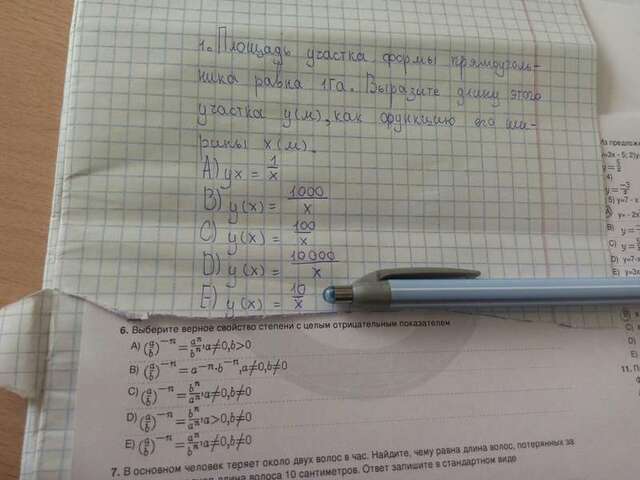 1. Площадь участка формы прямоуголь-
ника равна 1га. Выразите длину этого
участка y(м), как функцию его ши-
рины x(м).
A) yx = 1/x
B) y(x) = 1000/x
C) y(x) = 100/x
D) y(x) = 10000/x
E) y(x) = 10/x
6. Выберите верное свойство степени с целым отрицательным показателем
A) (a/b)^−n = a^n/b^n, a≠0, b>0
B) (a/b)^−n = a^−n·b^−n, a≠0, b≠0
C) (a/b)^−n = b^n/a^n, a≠0, b≠0
D) (a/b)^−n = b^n/a^n, a>0, b≠0
E) (a/b)^−n = a^n/b^n, a≠0, b≠0
7. В основном человек теряет около двух волос в час. Найдите, чему равна длина волос, потерянных за
длина волоса 10 сантиметров. Ответ запишите в стандартном виде
Из предлож
y=3x - 5; 2)y
4)
5) y=7 - x
A) y= - 2x
B) y =
C) y =
D) y=7-x
E) y =
11.